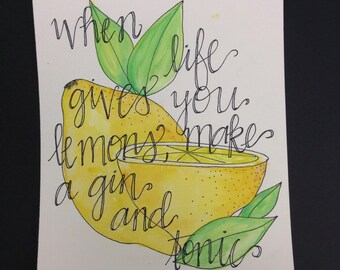 when life
gives you
lemons, make
a gin
and
tonic.